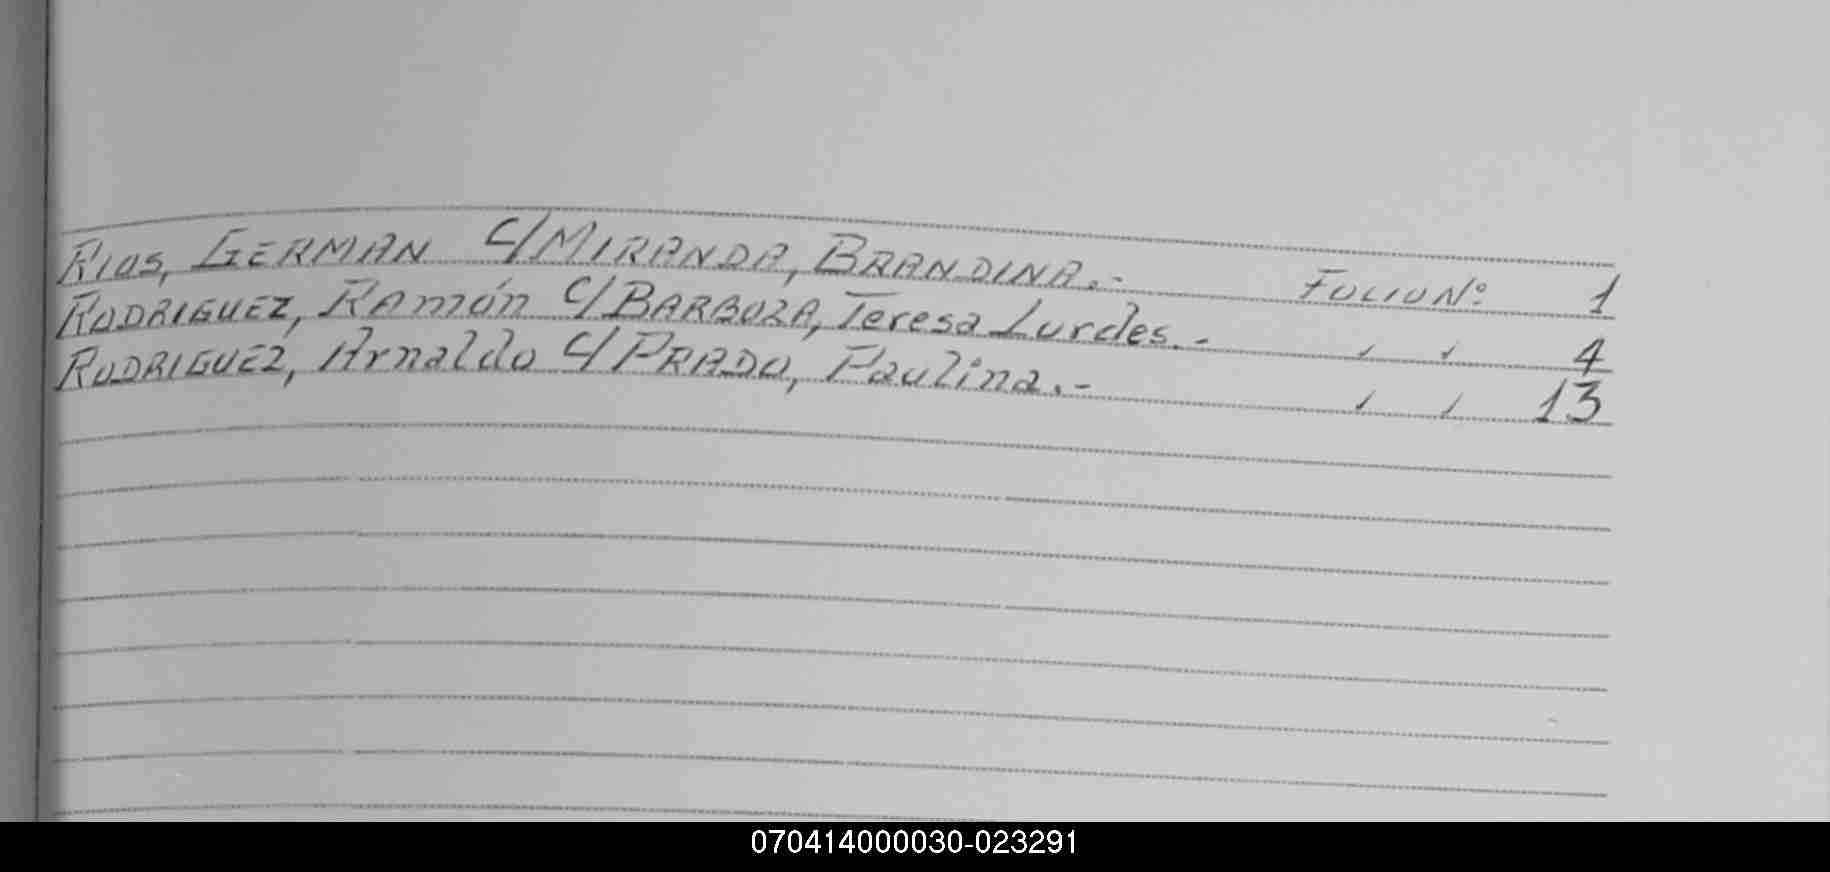 RIOS, GERMAN C/MIRANDA, BRANDINA.- FOLIO Nº 1
RODRIGUEZ, RAMÓN C/BARBOZA, Teresa Lurdes.- " " 4
RODRIGUEZ, Arnaldo C/PRADO, Paulina.- " " 13
070414000030-023291